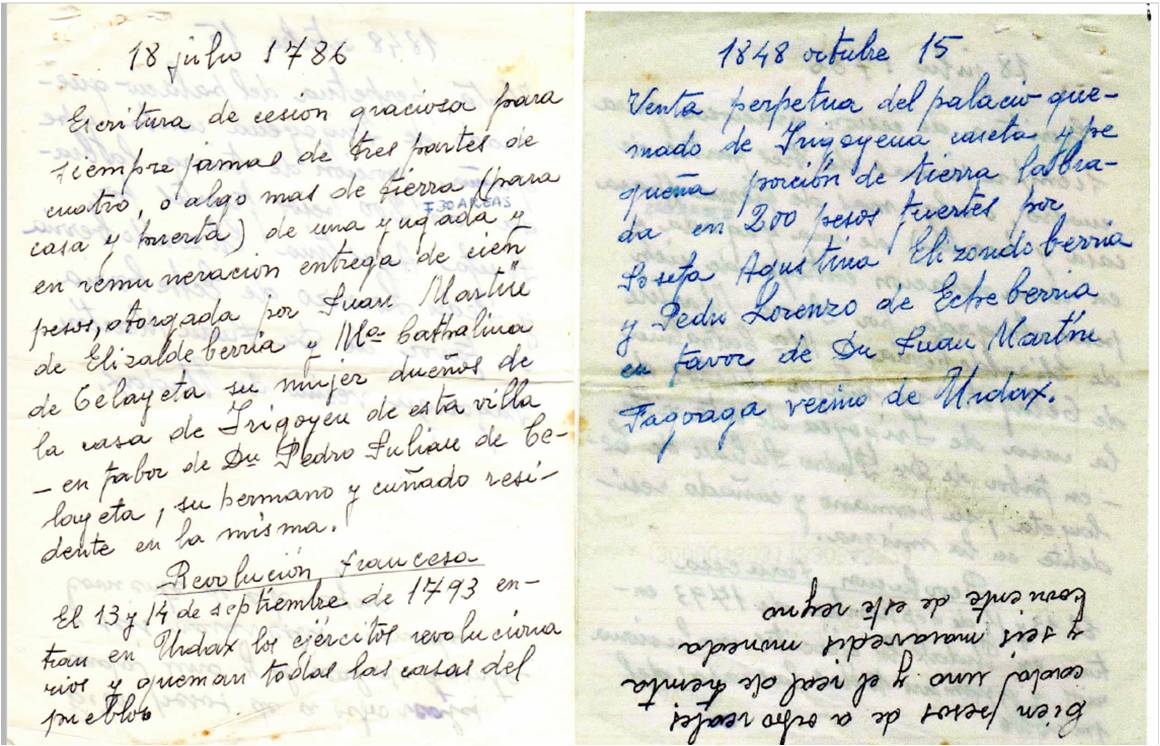 18 julio 1786
Escritura de cesion graciosa para
siempre jamas de tres partes de
cuatro, o algo mas de tierra (para
730 AREAS
casa y huerta) de una yugada y
en remuneración entrega de cien
pesos, otorgada por Juan Martin
de Elizaldeberria y Mª Cathalina
de Celayeta su mujer dueños de
la casa de Irigoyen de esta villa
- en fabor de Dn Pedro Julian de Ce-
layeta, su hermano y cuñado resi-
dente en la misma.
Revolución francesa
El 13 y 14 de septiembre de 1793 en-
tran en Urdax los ejércitos revoluciona
rios y queman todas las casas del
pueblo
1848 octubre 15
Venta perpetua del palacio que-
mado de Irigoyena caseta y pe
queña porción de tierra labra-
da en 200 pesos fuertes por
Josefa Agustina Elizondoberria
y Pedro Lorenzo de Echeberria
en favor de Dn Juan Martin
Fagoaga vecino de Urdax.
Cien pesos de a ocho reales
cada uno y el real de treinta
y seis maravedis moneda
corriente de este reyno